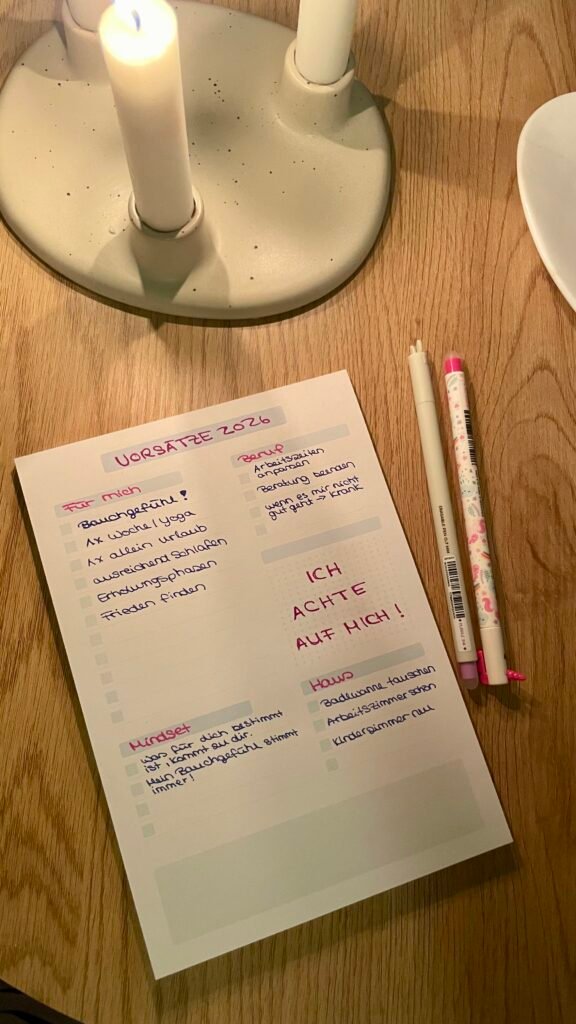 VORSÄTZE 2026
Für mich
Bauchgefühl!
1x Woche / Yoga
1x allein Urlaub
ausreichend Schlafen
Erholungsphasen
Frieden finden
Beruf
Arbeitszeiten
anpassen
Beratung beenden
wenn es mir nicht
gut geht → krank
ICH
ACHTE
AUF MICH!
Mindset
was für dich bestimmt
ist, kommt zu dir.
Mein Bauchgefühl stimmt
immer!
Haus
Badewanne tauschen
Arbeitszimmer schön
Kinderzimmer neu